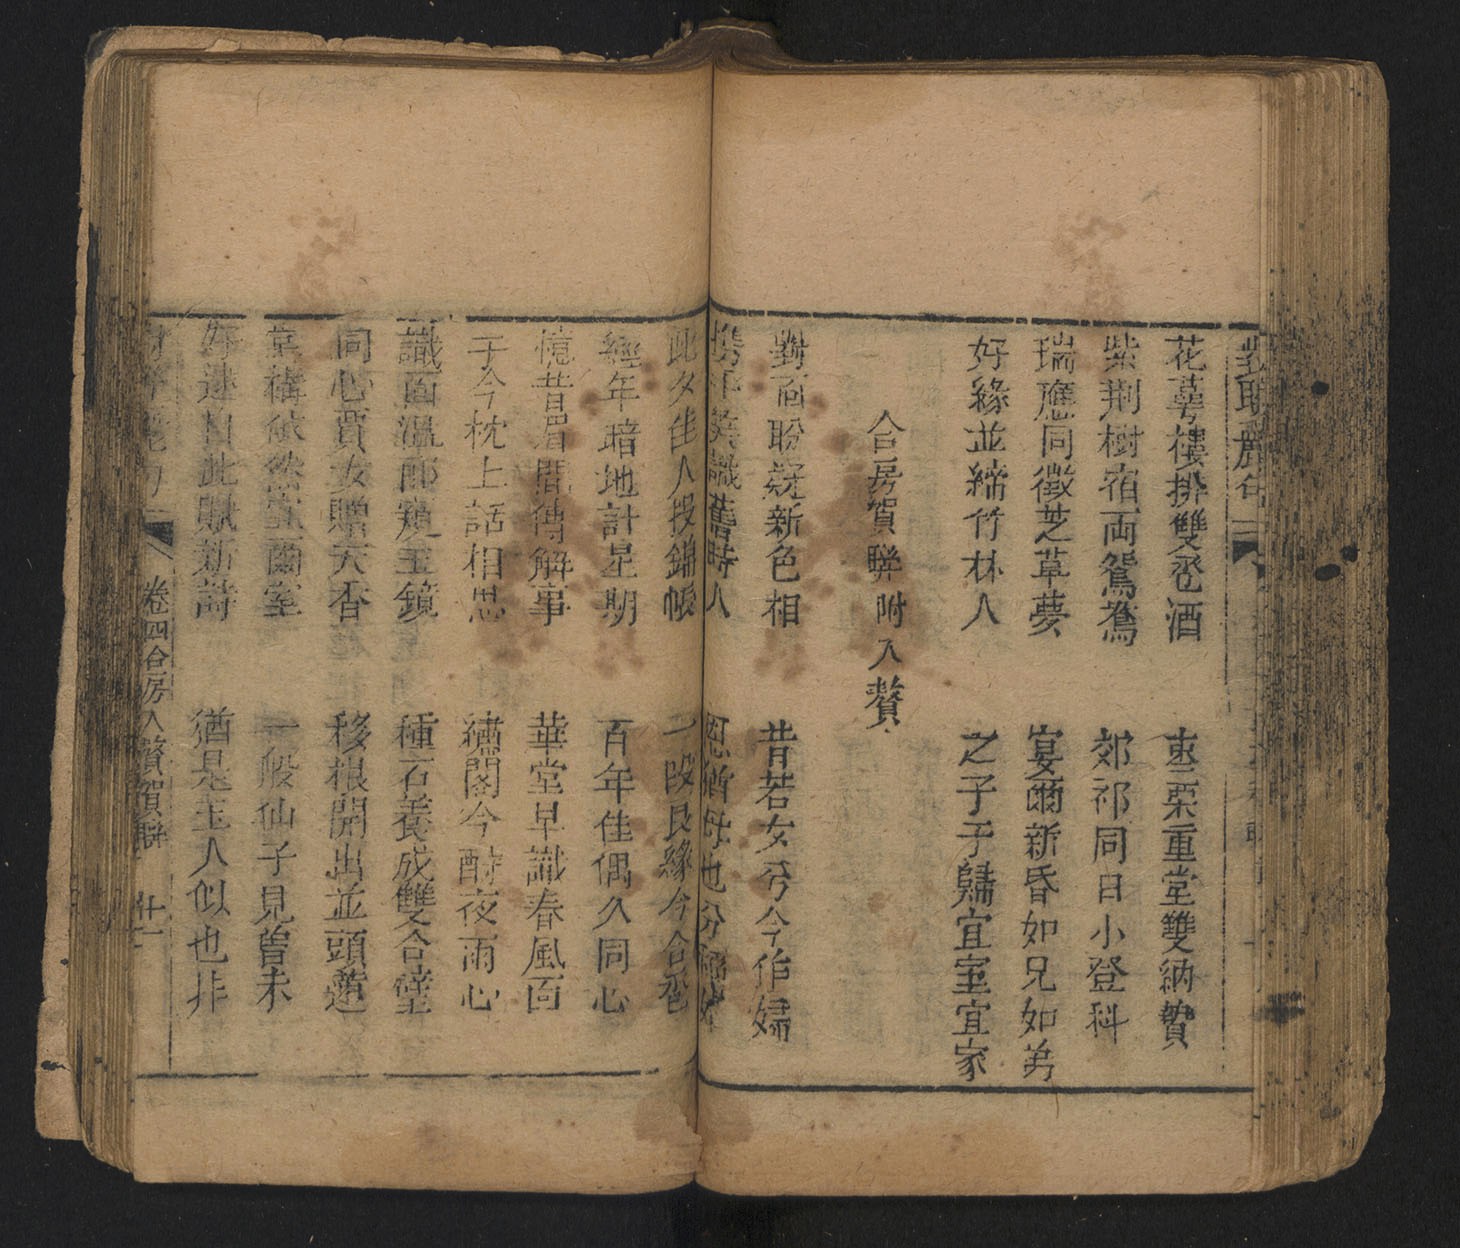 花萼樓排雙卺酒 棗栗重堂雙納贄
紫荆樹宿両鴛鴦 郊祁同日小登科
瑞應同徵芝草夢 宴爾新昏如兄如弟
好緣並締竹林人 之子于歸宜室宜家
合房賀聯 附入贅
對面盼疑新色相 昔若女兮今作婦
携手笑識舊時人 恩猶母也分
此夕佳人投錦帳 一段良緣今合卺
經年暗地計星期 百年佳偶久同心
憶昔眉間傳解事 華堂早識春風面
于今枕上話相思 繡閣今酧夜雨心
識面温郎窺玉鏡 種石養成雙合璧
同心賈女贈天香 移根開出並頭蓮
依然蘭室 一般仙子見曾未
好逑自此賦新詩 猶是玉人似也非
卷四合房入贅賀聯 十一